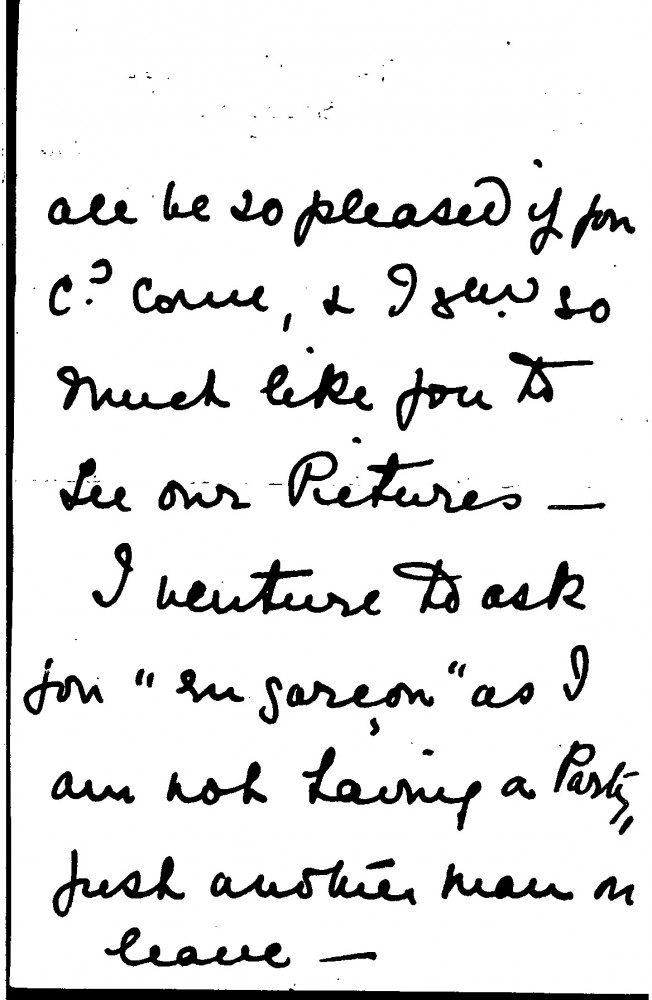 all be so pleased if you
cd. come, & I shd. so
much like you to
see our Pictures —
I venture to ask
you "en garçon" as I
am not having a Party,
just another man on
leave —